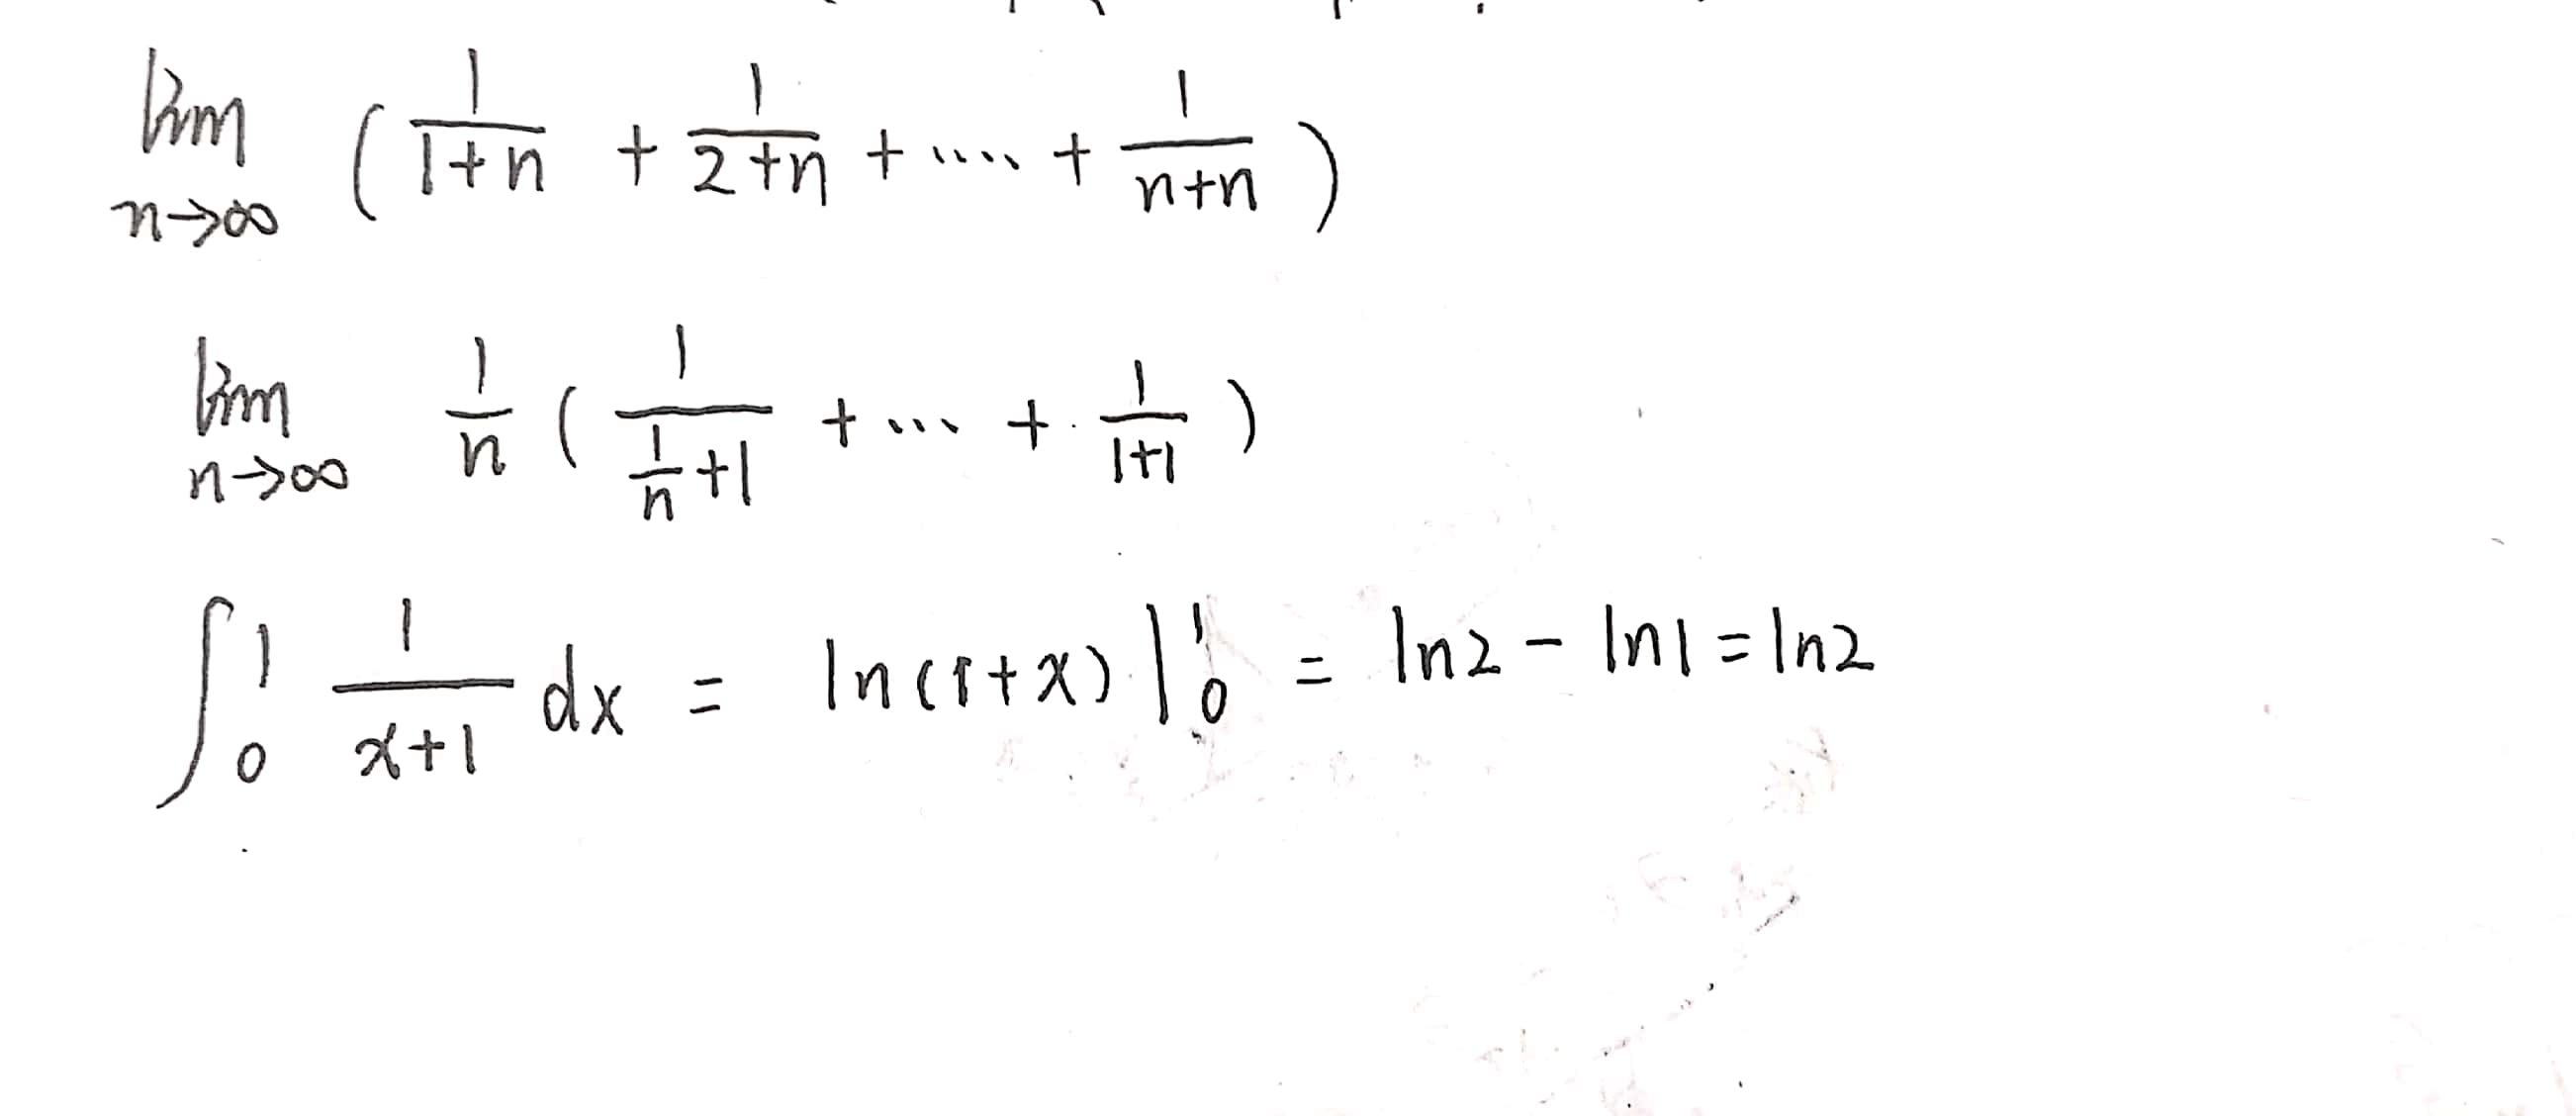 lim n→∞ ( 1/(1+n) + 1/(2+n) + .... + 1/(n+n) )
lim n→∞ 1/n ( 1/(1/n+1) + ... + 1/(1+1) )
∫₀¹ 1/(x+1) dx = ln(1+x) |₀¹ = ln2 - ln1 = ln2